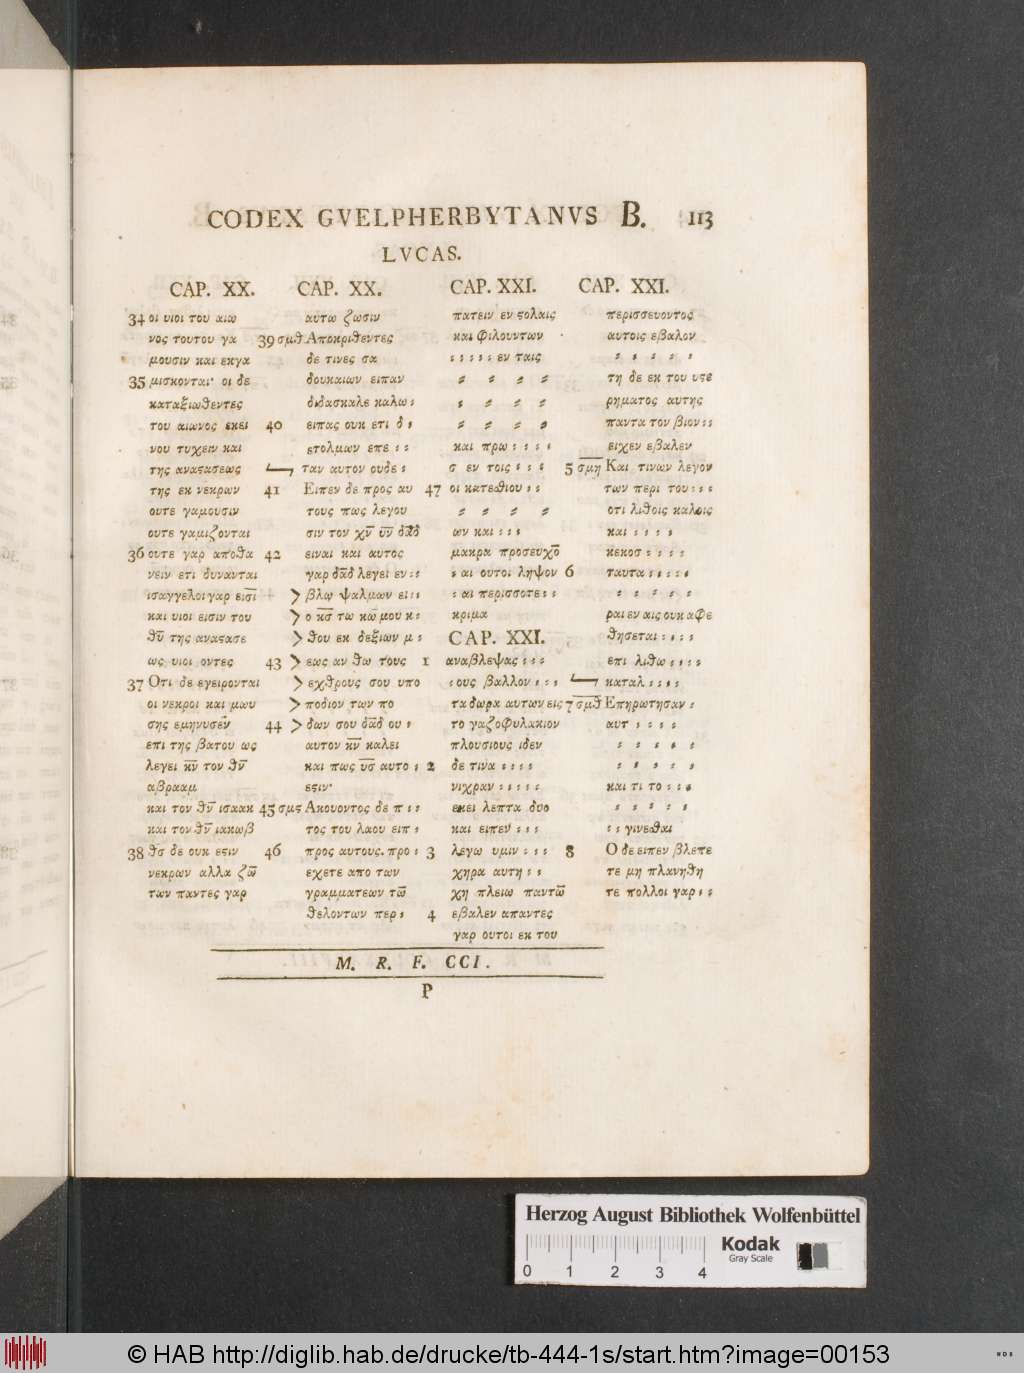 CODEX GVELPHERBYTANVS B. 113
LVCAS.
CAP. XX.
34 οι υιοι του αιω
νος τουτου γα
μουσιν και εκγα
35 μισκονται· οι δε
καταξιωθεντες
του αιωνος εκει
νου τυχειν και
της αναϛασεως
της εκ νεκρων
ουτε γαμουσιν
ουτε γαμιζονται
36 ουτε γαρ αποθα
νειν ετι δυνανται
ισαγγελοι γαρ εισῑ
και υιοι εισιν του
θῡ της αναϛασε
ως υιοι οντες
37 Οτι δε εγειρονται
οι νεκροι και μωυ
σης εμηνυσεν
επι της βατου ως
λεγει κ̅ν̅ τον θ̅ν̅
αβρααμ
και τον θ̅ν̅ ισαακ
και τον θ̅ν̅ ιακωβ
38 θσ δε ουκ εϛιν
νεκρων αλλα ζω̅
των παντες γαρ
CAP. XX.
αυτω ζωσιν
39 σμθ Αποκριθεντες
δε τινες σα
δουκαιων ειπαν
διδασκαλε καλω :
40 ειπας ουκ ετι δ :
ετολμων επε : :
ταν αυτον ουδε :
41 Ειπεν δε προς αυ
τους πως λεγου
σιν τον χ̅ν̅ υ̅ν̅ δ̅α̅δ̅
42 ειναι και αυτος
γαρ δ̅α̅δ̅ λεγει εν : :
> βλω ψαλμων ει : :
> ο κ̅σ̅ τω κω̅ μου κ :
> θου εκ δεξιων μ :
43 > εως αν θω τους
> εχθρους σου υπο
> ποδιον των πο
44 > δων σου δ̅α̅δ̅ ου :
αυτον κ̅ν̅ καλει
και πως υ̅σ̅ αυτο :
εϛιν·
45 σμϛ Ακουοντος δε π : :
τος του λαου ειπ :
46 προς αυτους. προ :
εχετε απο των
γραμματεων τω̅
θελοντων περ :
CAP. XXI.
πατειν εν ϛολαις
και φιλουντων
: : : : : εν ταις
: : : :
: : : :
: : : :
και πρω : : : :
σ εν τοις : : :
47 οι κατεσθιου : :
: : : :
ων και : : :
μακρα προσευχο̅
: αι ουτοι ληψον
: αι περισσοτε : :
κριμα
CAP. XXI.
1 αναβλεψας : : :
: ους βαλλον : : :
τα δωρα αυτων εις
το γαζοφυλακιον
πλουσιους ιδεν
2 δε τινα : : : :
νιχραν : : : : :
εκει λεπτα δυο
και ειπεν : : :
3 λεγω υμιν : : :
χηρα αυτη : :
χη πλειω παντω̅
4 εβαλεν απαντες
γαρ ουτοι εκ του
CAP. XXI.
περισσευοντος
αυτοις εβαλον
: : : : :
τη δε εκ του υϛε
ρηματος αυτης
παντα τον βιον : :
ειχεν εβαλεν
5 σ̅μ̅η̅ Και τινων λεγον
των περι του : : :
οτι λιθοις καλοις
και : : : :
κεκοσ : : : :
6 ταυτα : : : : :
: : : : :
ραι εν αις ουκ αφε
θησεται : : : :
επι λιθω : : : :
καταλ : : : :
7 σ̅μ̅θ̅ Επηρωτησαν :
αυτ : : : :
: : : : :
: : : : :
και τι το : : :
: : : : :
: : γινεσθαι
8 Ο δε ειπεν βλεπε
τε μη πλανηθη
τε πολλοι γαρ : :
M. R. F. CCI.
P
Herzog August Bibliothek Wolfenbüttel
Kodak
Gray Scale
0 1 2 3 4
© HAB http://diglib.hab.de/drucke/tb-444-1s/start.htm?image=00153